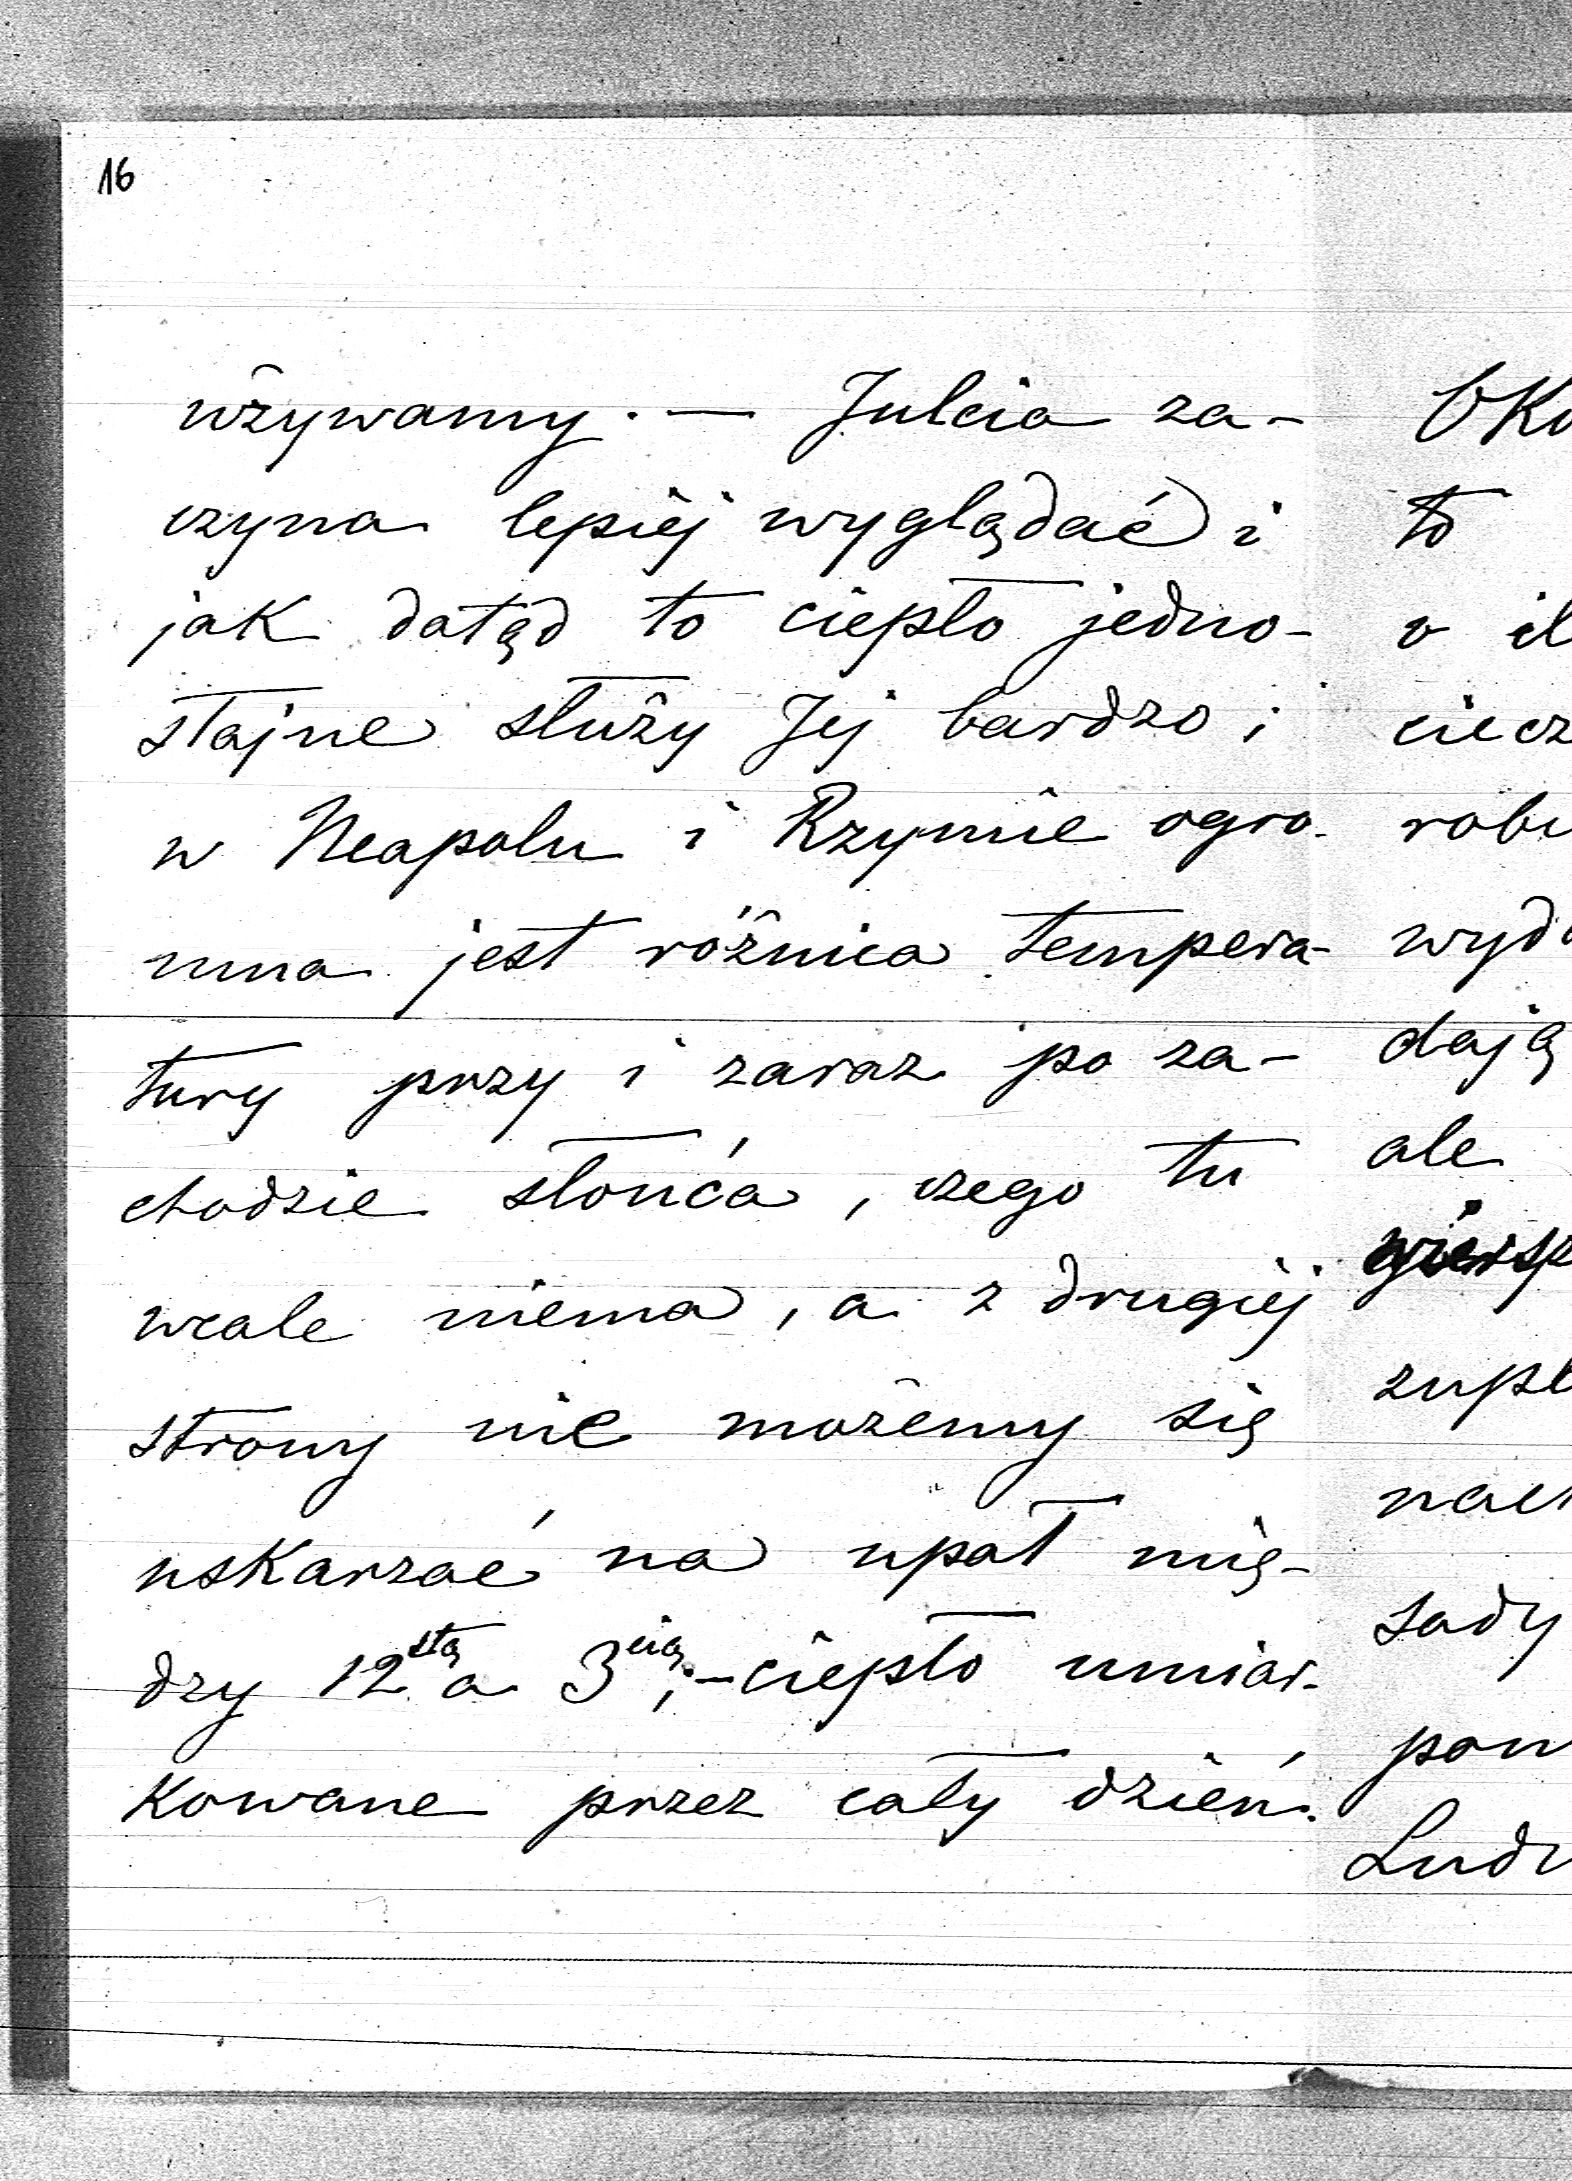 16
używamy. — Julcia za-
czyna lepiéj wyglądać i
jak dotąd to ciepło jedno-
stajne służy Jej bardzo;
w Neapolu i Rzymie ogro-
mna jest różnica tempera-
tury przy i zaraz po za-
chodzie słońca, czego tu
wcale niema, a z drugiéj
strony nie możemy się
uskarzać na upał mię-
dzy 12stą a 3cią; — ciepło umiar-
kowane przez cały dzień.
to
o
dają
ale
sady